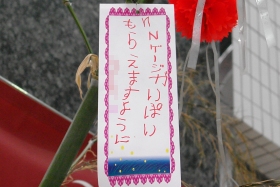 NNケージがいっぱい
もらえますように